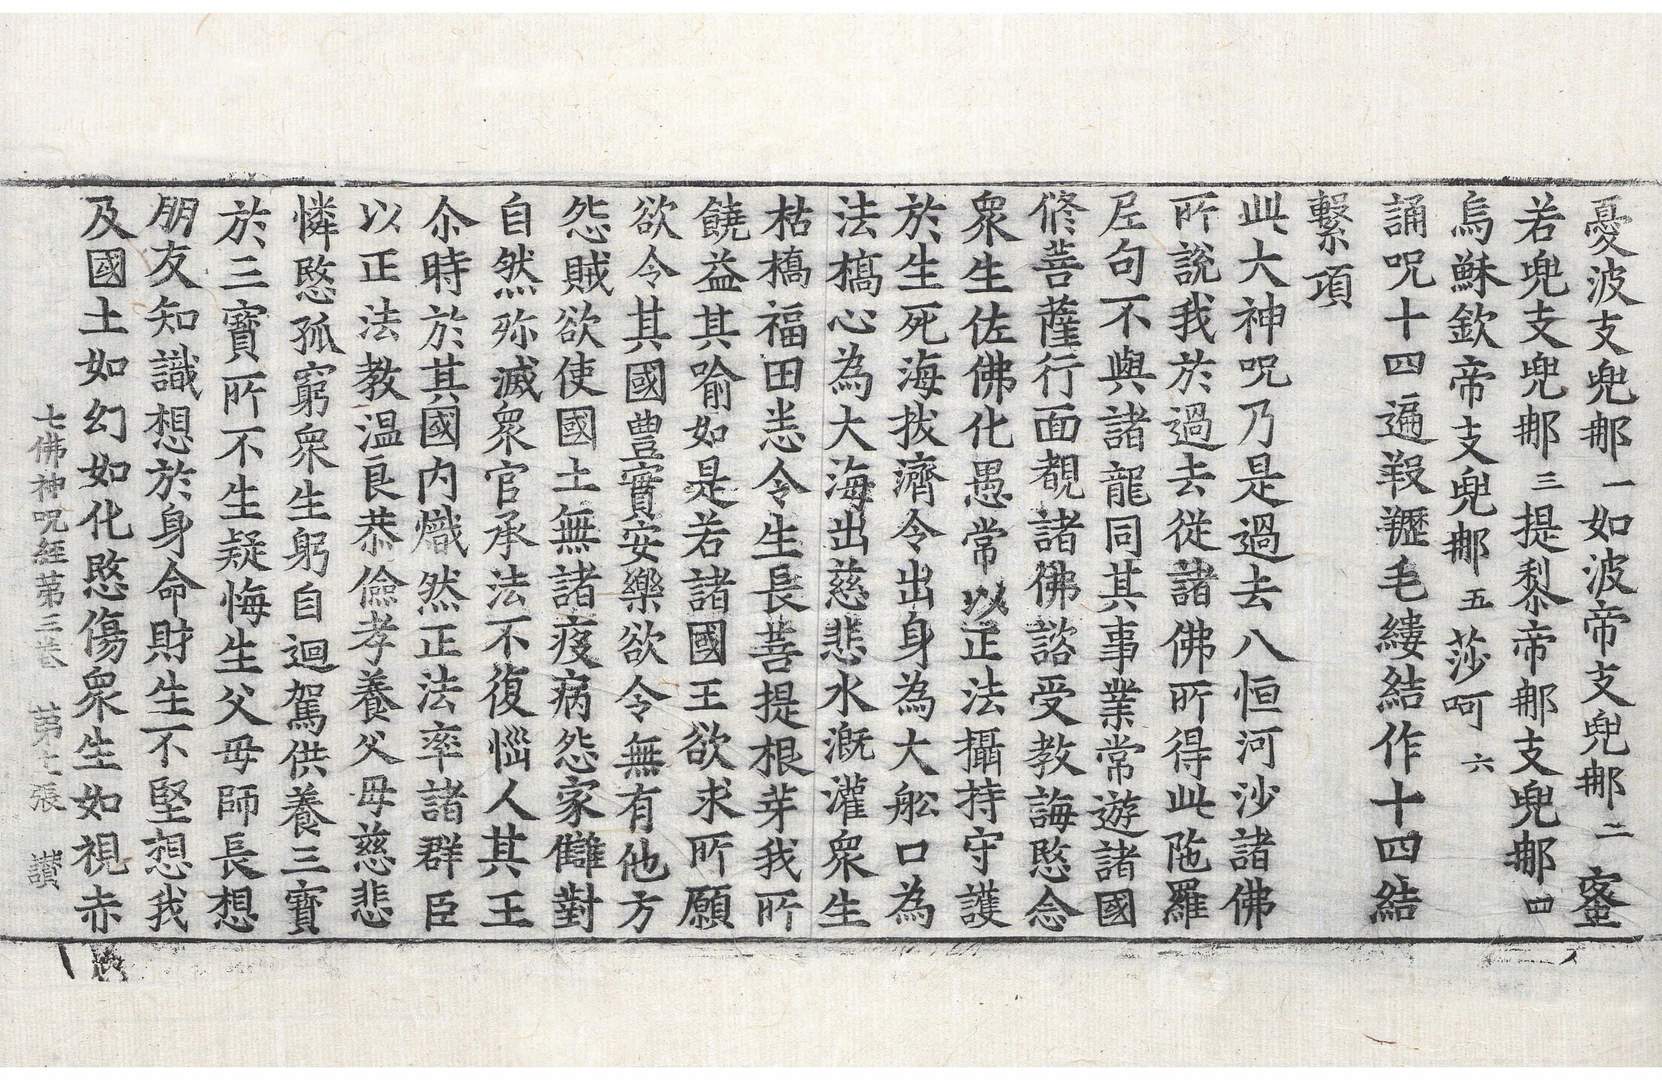 憂波支兜𨚗一如波帝支兜𨚗二蜜
若兜支兜𨚗三提梨帝𨚗支兜𨚗四
烏穌欽帝支兜𨚗五莎呵六
誦呪十四遍羖䍽毛縷結作十四結
繫項
此大神呪乃是過去八恒河沙諸佛
所說我於過去從諸佛所得此陁羅
尼句不與諸龍同其事業常遊諸國
修菩薩行面覩諸佛諮受教誨愍念
衆生佐佛化愚常以正法攝持守護
於生死海拔濟令出身為大舩口為
法橋心為大海出慈悲水溉灌衆生
枯槁福田悉令生長菩提根芽我所
饒益其喻如是若諸國王欲求所願
欲令其國豐實安樂欲令無有他方
怨賊欲使國土無諸疫病怨家讎對
自然殄滅衆官承法不復惱人其王
尒時於其國内熾然正法率諸群臣
以正法教温良恭儉孝養父母慈悲
憐愍孤窮衆生躬自迴駕供養三寶
於三寶所不生疑悔生父母師長想
朋友知識想於身命財生不堅想我
及國土如幻如化愍傷衆生如視赤
七佛神呪經第三卷 第七張 讃